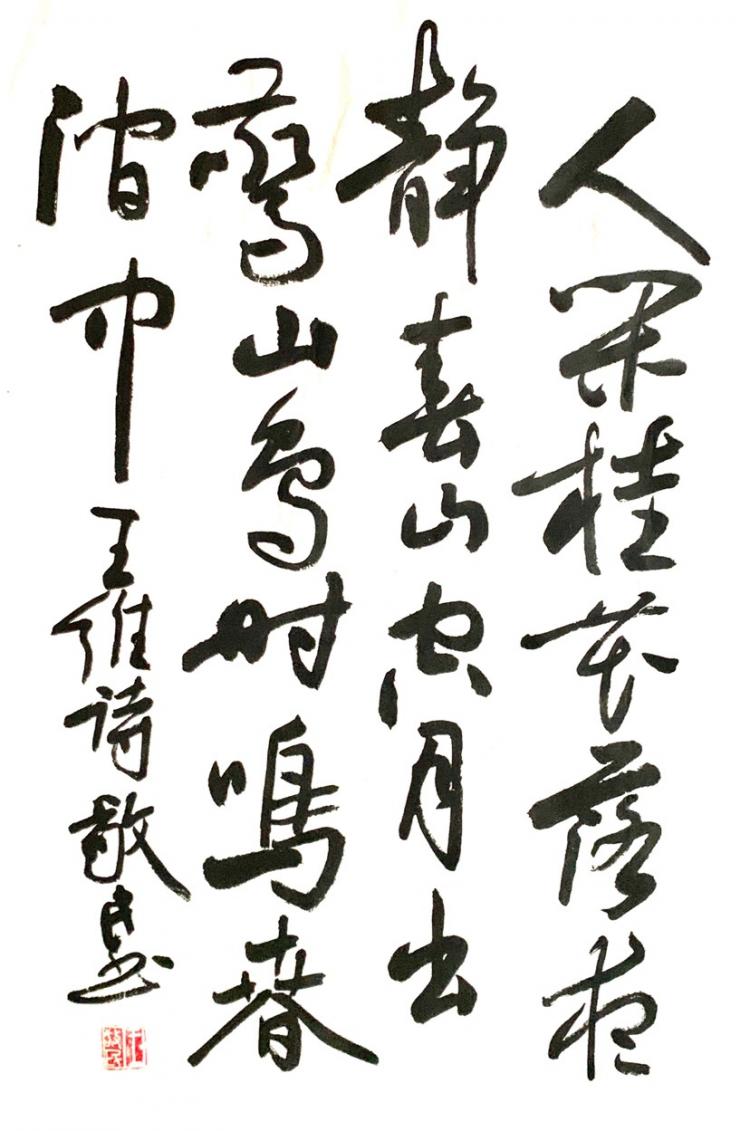 人闲桂花落夜
静春山空月出
驚山鸟时鳴春
涧中 王维詩 敬民书